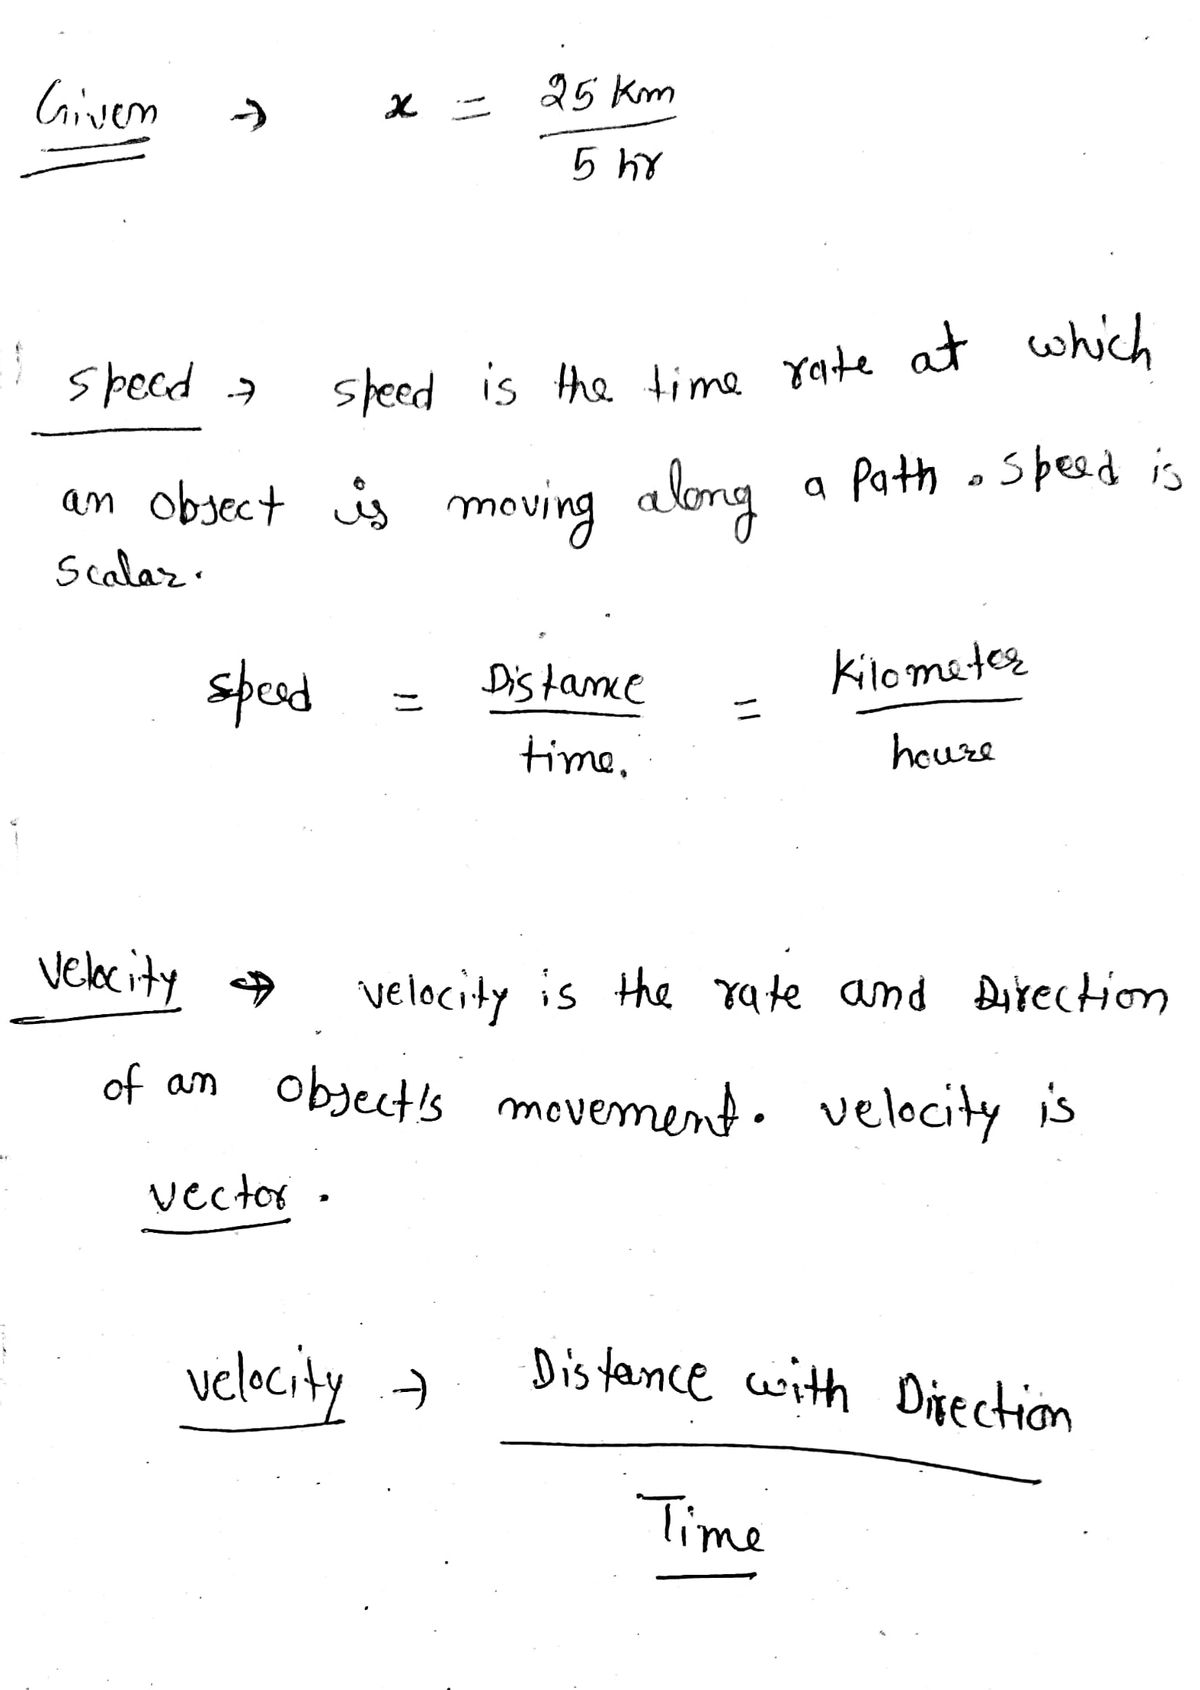 Given → x = 25 Km
5 hr
Speed → speed is the time rate at which
an object is moving along a Path. Speed is
Scalar.
speed = Distance = Kilometer
time. houre
Velocity → velocity is the rate and Direction
of an object's movement. velocity is
vector.
velocity → Distance with Direction
Time